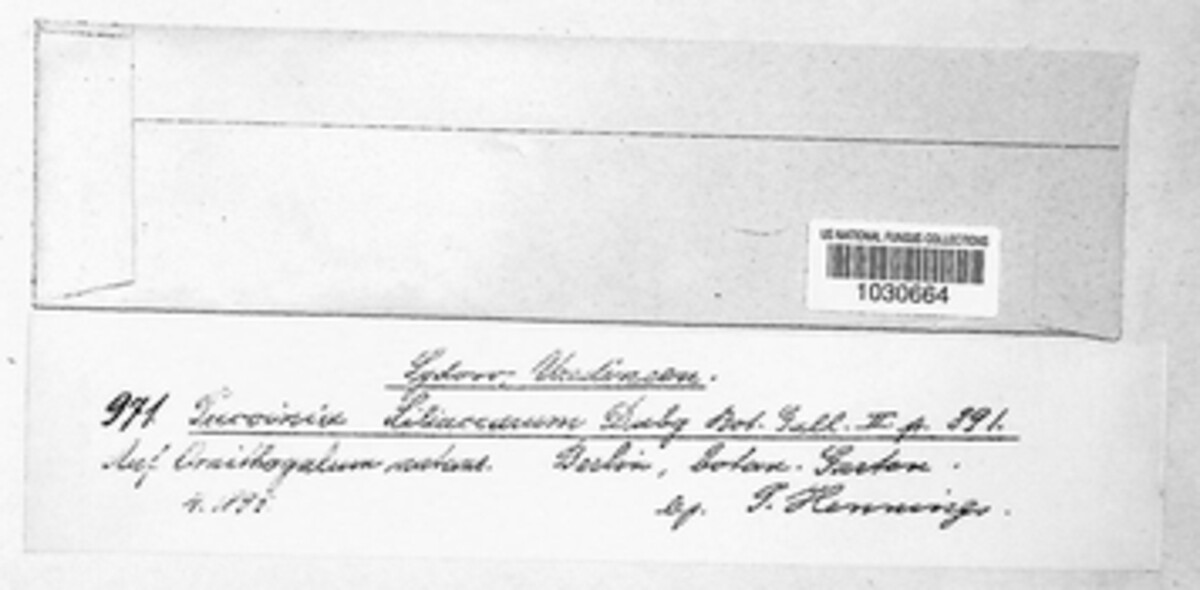 US NATIONAL FUNGUS COLLECTIONS
1030664
Sydow, Uredineen.
971. Puccinia Liliacearum Duby Bot. Gall. II p. 891.
Auf Ornithogalum nutans. Berlin, botan. Garten.
lg. P. Hennings.